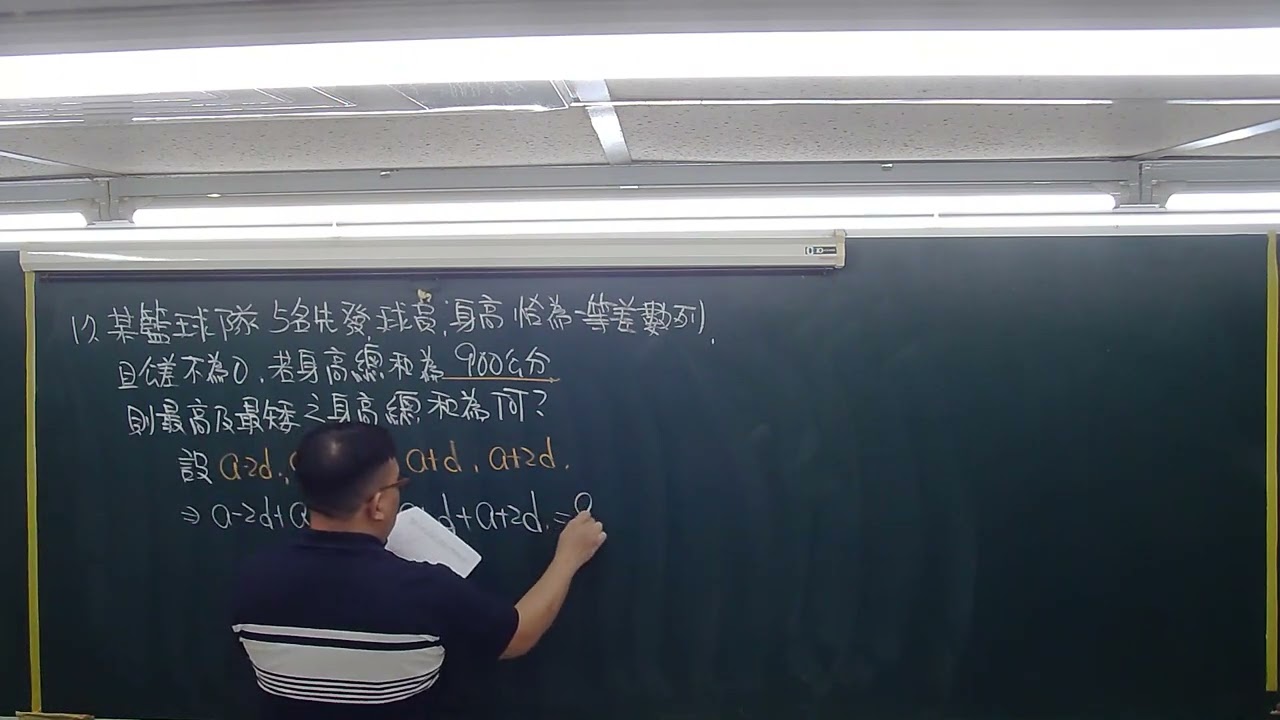 12. 某籃球隊5名先發球員,身高恰為一等差數列,
且公差不為0,若身高總和為 900公分
則最高及最矮之身高總和為何?
設 a-2d, a+d, a+2d.
⇒ a-2d+a d+a+2d.=9